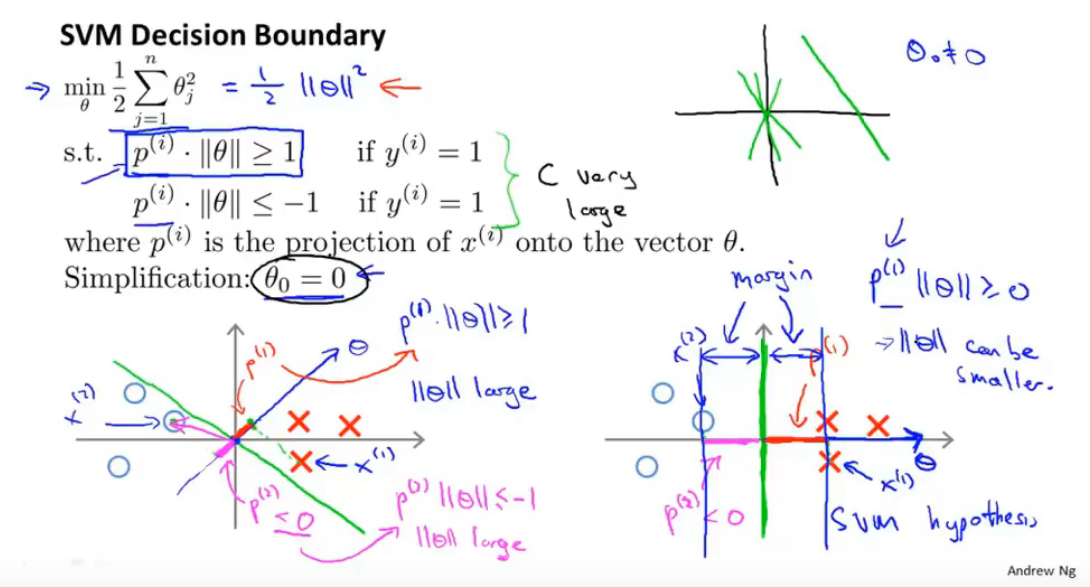 SVM Decision Boundary
→ min_θ 1/2 ∑_{j=1}^{n} θ_j^2 = 1/2 ||θ||^2 ←
θ₀ ≠ 0
s.t. p^{(i)} · ||θ|| ≥ 1 if y^{(i)} = 1
p^{(i)} · ||θ|| ≤ −1 if y^{(i)} = 1
C very
large
where p^{(i)} is the projection of x^{(i)} onto the vector θ.
Simplification: θ₀ = 0
p^{(1)} · ||θ|| ≥ 1
||θ|| large
θ
p^{(1)}
x^{(2)}
x^{(1)}
p^{(2)}
< 0
p^{(2)} ||θ|| ≤ -1
||θ|| large
margin
p^{(1)} ||θ|| ≥ 0
→ ||θ|| can be
smaller.
x^{(2)}
p^{(1)}
θ
x^{(1)}
p^{(2)} < 0
SVM hypothesis
Andrew Ng